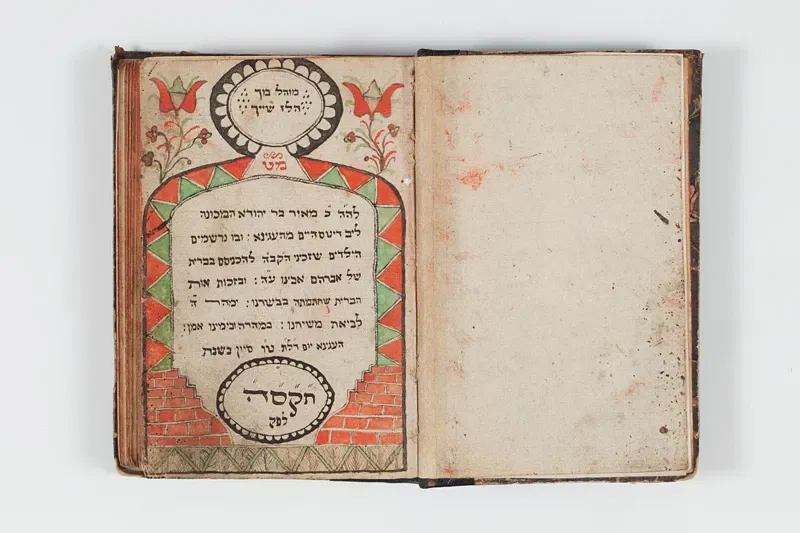 מוהל בוך
הלז שייך
מט
להה כ מאיר בר יהודא המכונה
ליב דיטסהיים מהעגינא : ובו נרשמים
הילדים שזכיני הקבה להכניסם בברית
של אברהם אבינו עה : ובזכות אות
הברית שחתמתה בבשרנו : ימהר ה
לביאת משיחנו : במהרה ובימינו אמן :
העגינא יום דלת סיון בשנת
תקסה
לפק